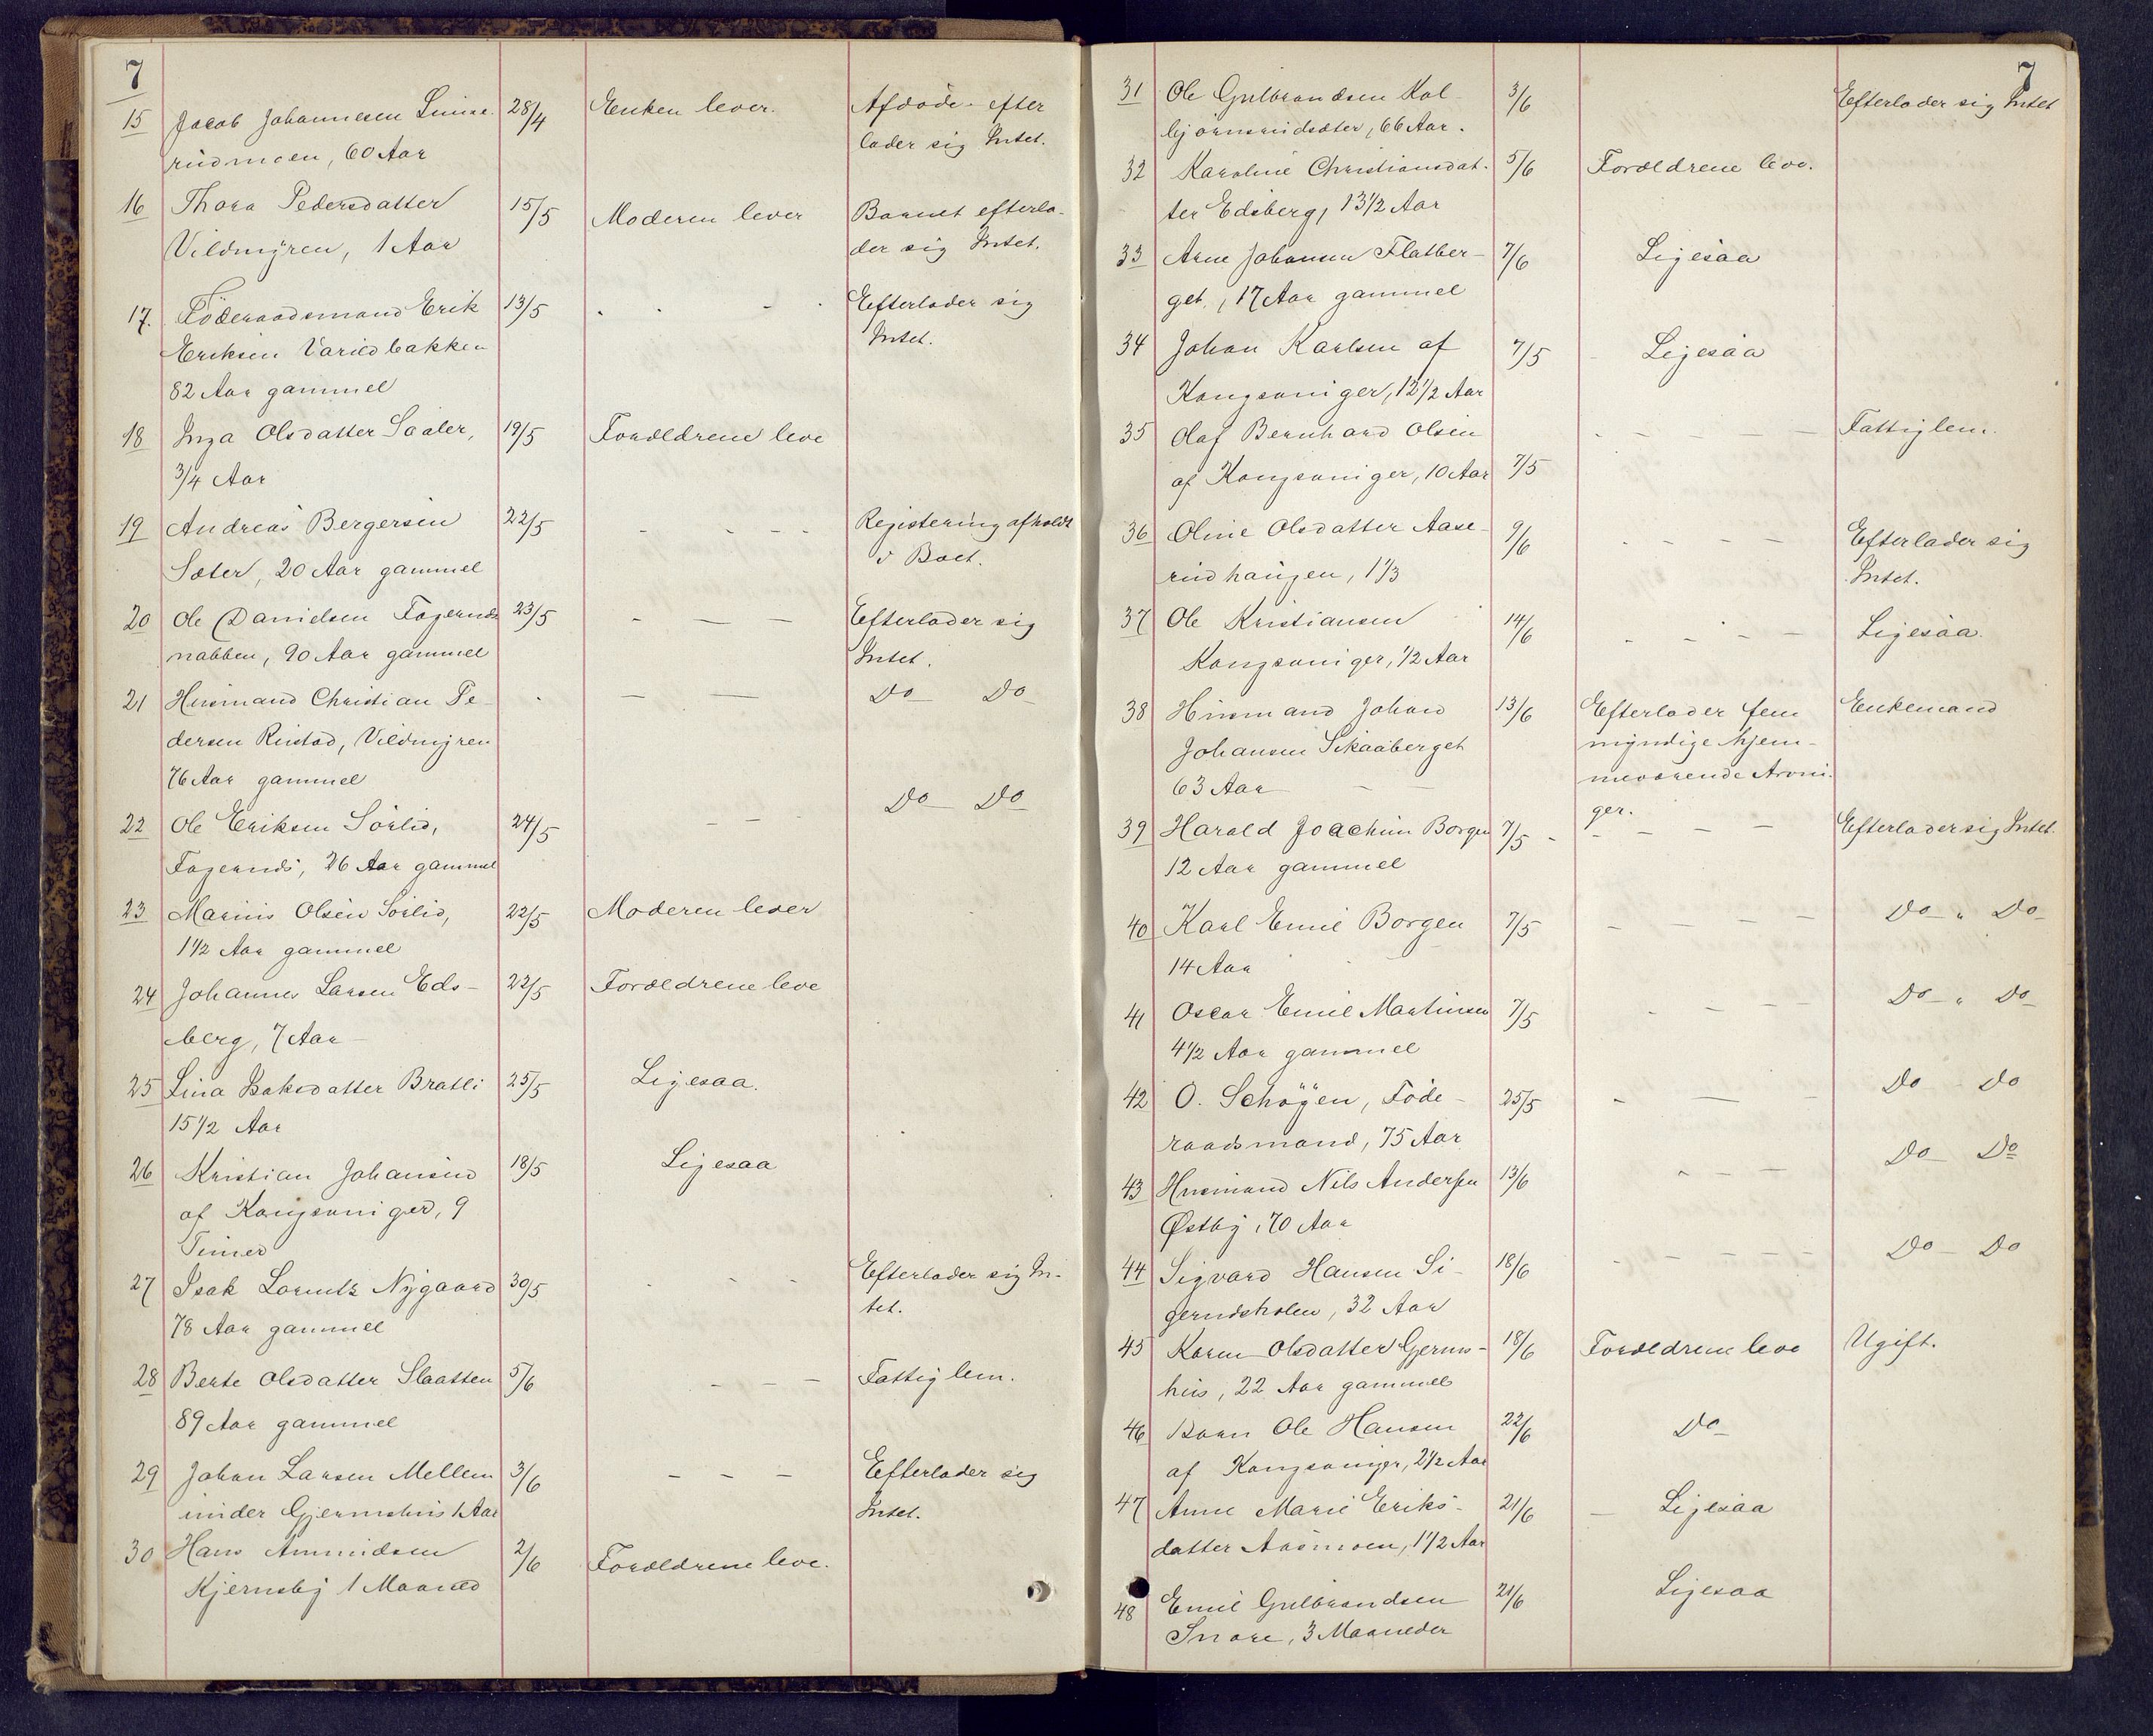 7
15 Jacob Johannesen Linne- 28/4 Enken lever. Afdøde efter
rudmoen, 60 Aar lader sig Intet.
16 Thora Pedersdatter 15/5 Moderen lever Barnet efterla-
Vildmyren, 1 Aar der sig Intet.
17. Föderaadsmand Erik 13/5 Efterlader sig
Eriksen Varildbakken Intet.
82 Aar gammel
18 Inga Olsdatter Saaler, 19/5 Forældrene leve
3/4 Aar
19 Andreas Bergersen 22/5 - - - - Registering afholdt
Sæter, 20 Aar gammel i Boet.
20 Ole Danielsen Fagernæs 23/5 - - - Efterlader sig
nabben, 90 Aar gammel Intet.
21 Husmand Christian Pe- - - Do Do
dersen Rustad, Vildmyren
76 Aar gammel
22 Ole Eriksen Sörlid, 24/5 - - Do Do
Fagernæs, 26 Aar gammel
23 Marius Olsen Sörlid, 22/5 Moderen lever
1 1/2 Aar gammel
24 Johannes Larsen Eds- 22/5 Forældrene leve
berg, 7 Aar
25 Lina Isaksdatter Bratli 25/5 Ligesaa.
15 1/2 Aar
26 Kristian Johansen 18/5 Ligesaa
af Kongsvinger, 9
Timer
27 Isak Lorentz Nygaard 30/5 - - - Efterlader sig In-
78 Aar gammel tet.
28 Berte Olsdatter Slaatten 5/6 - - - Fattiglem.
89 Aar gammel
29 Johan Larsen Mellem 3/6 - - - Efterlader sig
under Gjermshus 1 Aar Intet.
30 Hans Amundsen 2/6 Forældrene leve.
Kjernsby 1 Maaned
7
31 Ole Gulbrandsen Kol- 3/6 Efterlader sig Intet
bjørnsrudsæter, 66 Aar.
32 Karoline Christiansdat- 5/6 Forældrene leve.
ter Edsberg, 13 1/2 Aar
33 Arne Johansen Flatber- 7/6 Ligesaa
get, 17 Aar gammel
34 Johan Karlsen af 7/5 Ligesaa
Kongsvinger, 12 1/2 Aar
35 Olaf Bernhard Olsen - - - - - Fattiglem.
af Kongsvinger, 10 Aar 7/5
36 Oline Olsdatter Aase- 9/6 - - - - Efterlader sig
rudhaugen, 1 1/3 Intet.
37 Ole Kristiansen 14/6 - - - - Ligesaa.
Kongsvinger, 1/2 Aar
38 Husmand Johan 13/6 Efterlader fem Enkemand
Johansen Skaaberget myndige hjem-
63 Aar meværende Arvin-
ger.
39 Harald Joachim Borgen 7/5 - - - - Efterlader sig Intet.
12 Aar gammel
40 Karl Emil Borgen 7/5 - - - - Do " Do
14 Aar
41 Oscar Emil Martinsen 7/5 - - - - Do " Do
4 1/2 Aar gammel
42 O. Schöyen, Föde- 25/5 - - - Do Do
raadsmand, 75 Aar
43 Husmand Nils Andersen 13/6 - - - Do Do
Østby, 70 Aar
44 Sigvard Hansen Si- 18/6 - - - - - Do Do
gernæsholen, 32 Aar
45 Karen Olsdatter Gjerms- 18/6 Forældrene leve Ugift.
hus, 22 Aar gammel
46 Barn Ole Hansen 22/6 Do
af Kongsvinger, 2 1/2 Aar
47 Anne Marie Eriks- 21/6 Ligesaa
datter Aasmoen, 1 1/2 Aar
48 Emil Gulbrandsen 21/6 Ligesaa
Snare, 3 Maaneder